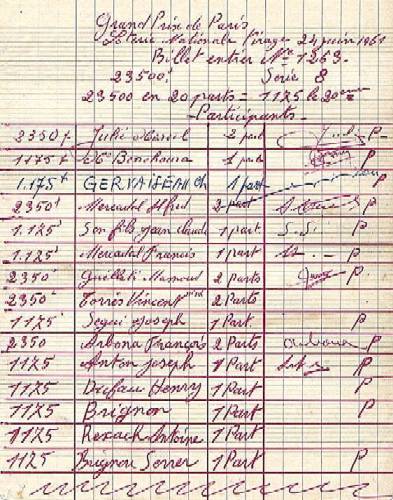 Grand Prix de Paris
Loterie Nationale Tirage 24 juin 1961
Billet entier No 1263.
23.500 Serie 8
23,500 en 20 parts = 1175 le 20eme
Participants.
2350 Julié Marcel 2 part P
1175 Benchaura 1 part P
1.175 GERVAISE 1 part P
2350 Mercadal Alfred 2 part P
1.175 Son fils jean claude 1 part S.S. P
1.175 Mercadal Francis 1 part P
2350 Guilleti 2 parts P.
2350 Torrès Vincent 2 Parts
1175 Segui Joseph 1 Part. P
2350 Arbona François 2 Parts P
1175 Anton Joseph 1 Part P
1175 Dufau Henry 1 Part P
1175 Brignon 1 Part P
1175 Rexach Antoine 1 Part
1175 Brignon Soner 1 Part P